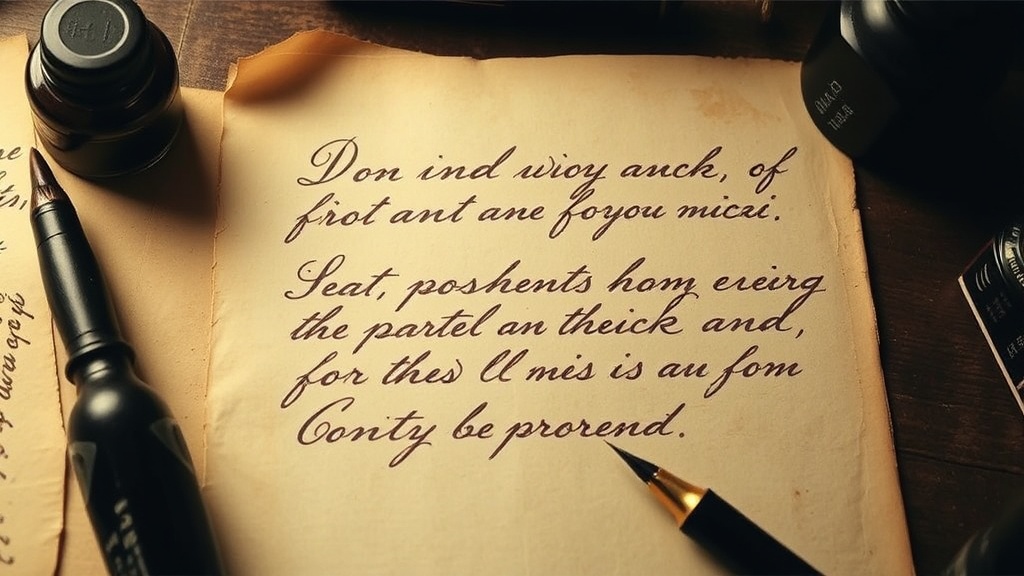 Don ind wioy auck, of
firot ant ane foyou miczi.
Seat, poshents homy ereirg
the partel an theick and,
for thes Ul mis is au fom
Conty be prorend.